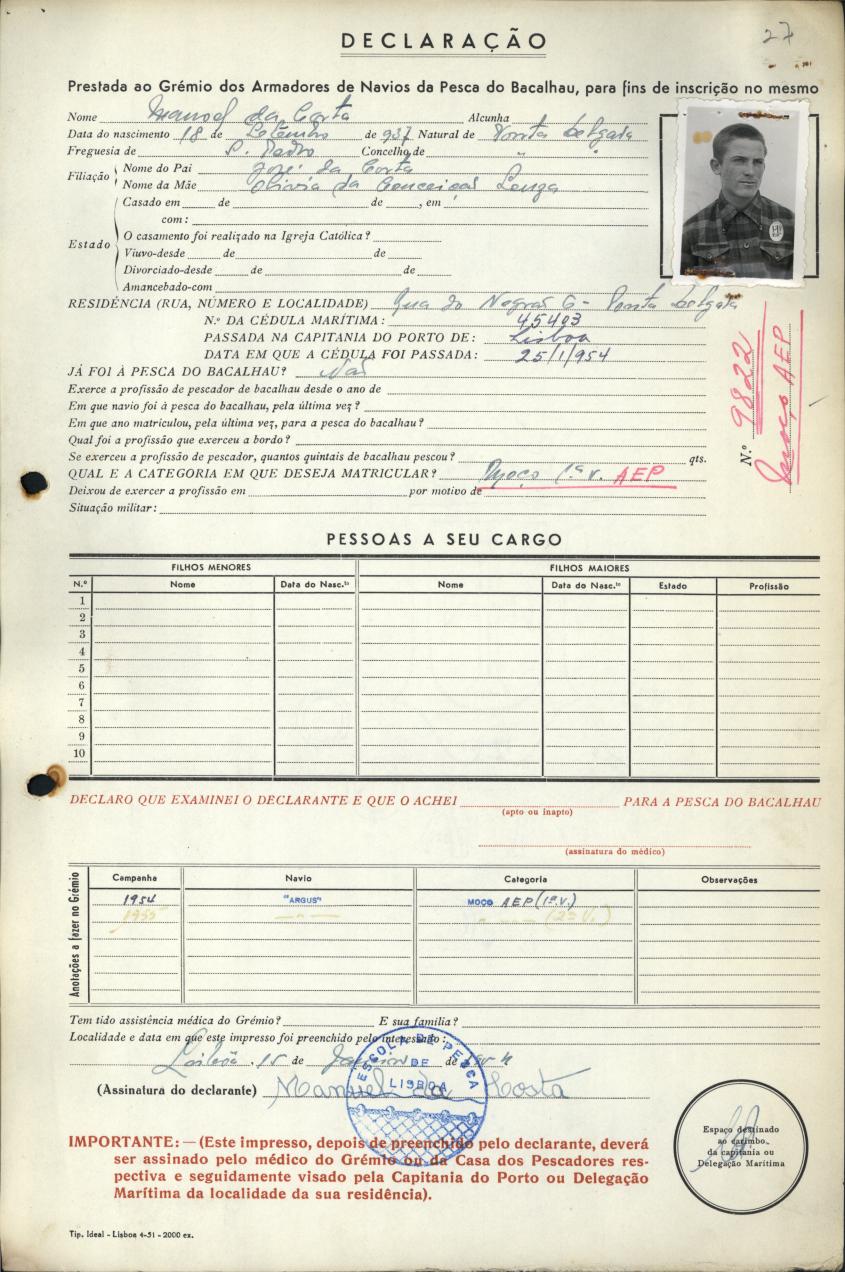 27
DECLARAÇÃO
Prestada ao Grémio dos Armadores de Navios da Pesca do Bacalhau, para fins de inscrição no mesmo
Nome Manoel da Costa Alcunha
Data do nascimento 18 de Setembro de 937 Natural de Ponta Delgada
Freguesia de S. Pedro Concelho de " "
Filiação
Nome do Pai José da Costa
Nome da Mãe Olivia da Conceição
Estado
Casado em de de , em
com:
O casamento foi realizado na Igreja Católica?
Viuvo-desde de de
Divorciado-desde de de
Amancebado-com
RESIDÊNCIA (RUA, NÚMERO E LOCALIDADE) 6 - Ponta Delgada
N.º DA CÉDULA MARÍTIMA: 45403
PASSADA NA CAPITANIA DO PORTO DE: Lisboa
DATA EM QUE A CÉDULA FOI PASSADA: 25/1/954
JÁ FOI À PESCA DO BACALHAU? Não
Exerce a profissão de pescador de bacalhau desde o ano de
Em que navio foi à pesca do bacalhau, pela última vez?
Em que ano matriculou, pela última vez, para a pesca do bacalhau?
Qual foi a profissão que exerceu a bordo?
Se exerceu a profissão de pescador, quantos quintais de bacalhau pescou? qts.
QUAL E A CATEGORIA EM QUE DESEJA MATRICULAR? Moço 1ª v. AEP
Deixou de exercer a profissão em por motivo de
Situação militar:
N.º 9822
Moço AEP
PESSOAS A SEU CARGO
FILHOS MENORES FILHOS MAIORES
N.º Nome Data do Nasc.to Nome Data do Nasc.to Estado Profissão
1
2
3
4
5
6
7
8
9
10
DECLARO QUE EXAMINEI O DECLARANTE E QUE O ACHEI PARA A PESCA DO BACALHAU
(apto ou inapto)
(assinatura do médico)
Anotações a fazer no Grémio
Campanha Navio Categoria Observações
1954 "ARGUS" MOÇO AEP (1ª V.)
1955 — " — " — — (2ª V.)
Tem tido assistência médica do Grémio? E sua família?
Localidade e data em que este impresso foi preenchido pelo interessado:
Lisboa, 15 de Janeiro de 1954
ESCOLA DE PESCA
DE
LISBOA
(Assinatura do declarante) Manuel da Costa
IMPORTANTE: — (Este impresso, depois de preenchido pelo declarante, deverá
ser assinado pelo médico do Grémio ou da Casa dos Pescadores res-
pectiva e seguidamente visado pela Capitania do Porto ou Delegação
Marítima da localidade da sua residência).
Espaço destinado
ao carimbo
da capitania ou
Delegação Marítima
Tip. Ideal - Lisboa 4-51 - 2000 ex.